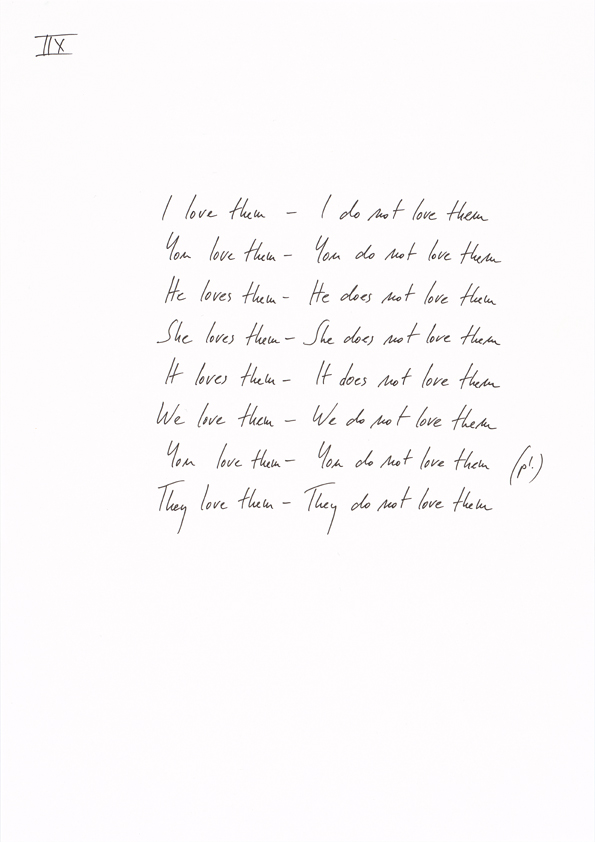 IIX
I love them – I do not love them
You love them – You do not love them
He loves them – He does not love them
She loves them – She does not love them
It loves them – It does not love them
We love them – We do not love them
You love them – You do not love them (pl.)
They love them – They do not love them